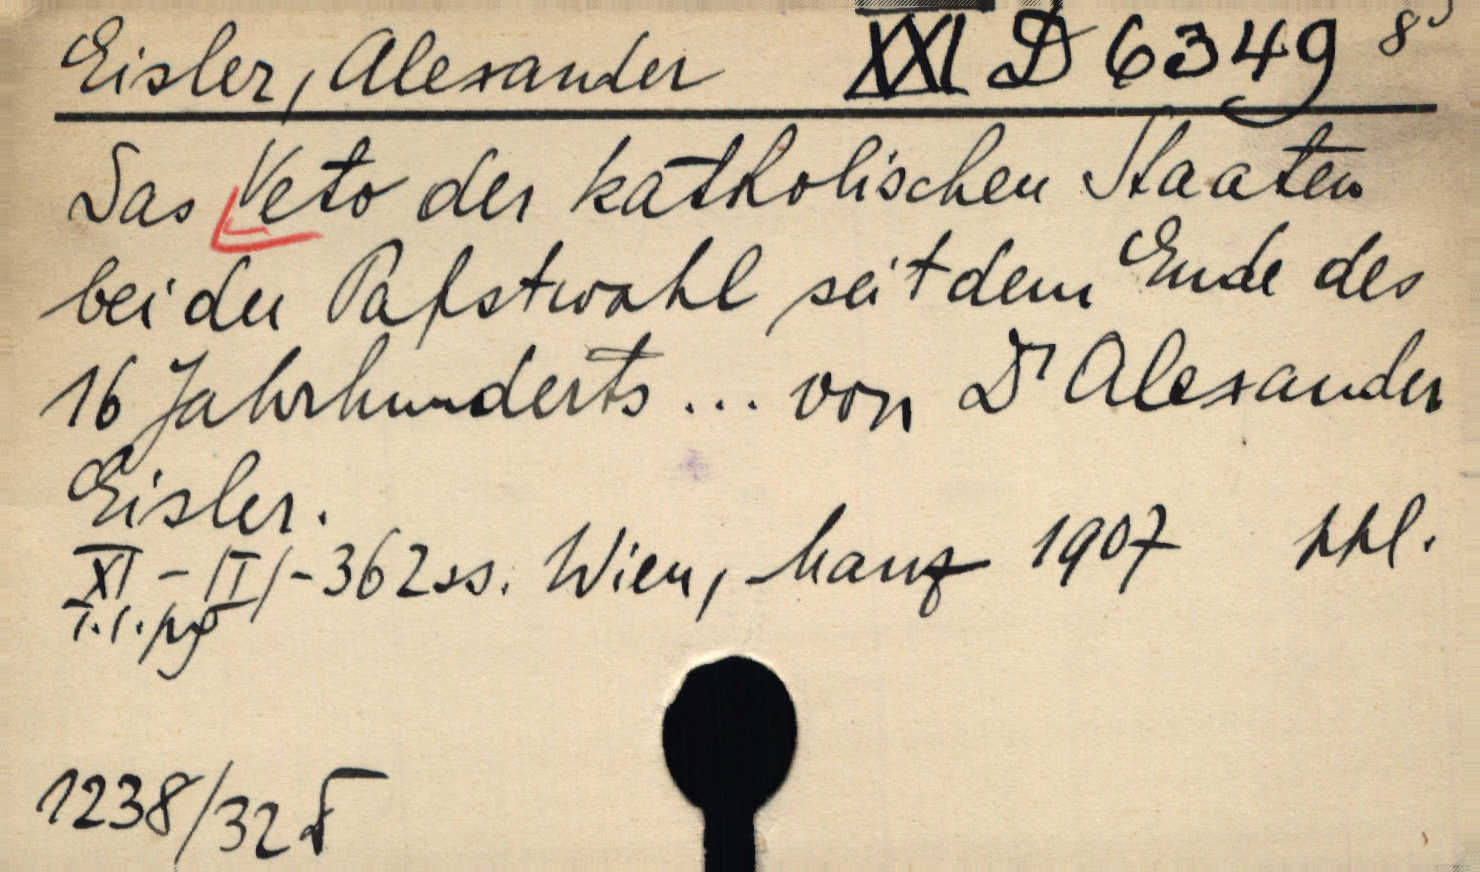 Eisler, Alexander XXI D 6349 8°
Das Veto der katholischen Staaten
bei der Papstwahl seit dem Ende des
16 Jahrhunderts ... von Dr Alexander
Eisler.
XI - /I/ - 362 ss. Wien, Manz 1907 ppl.
1238/32